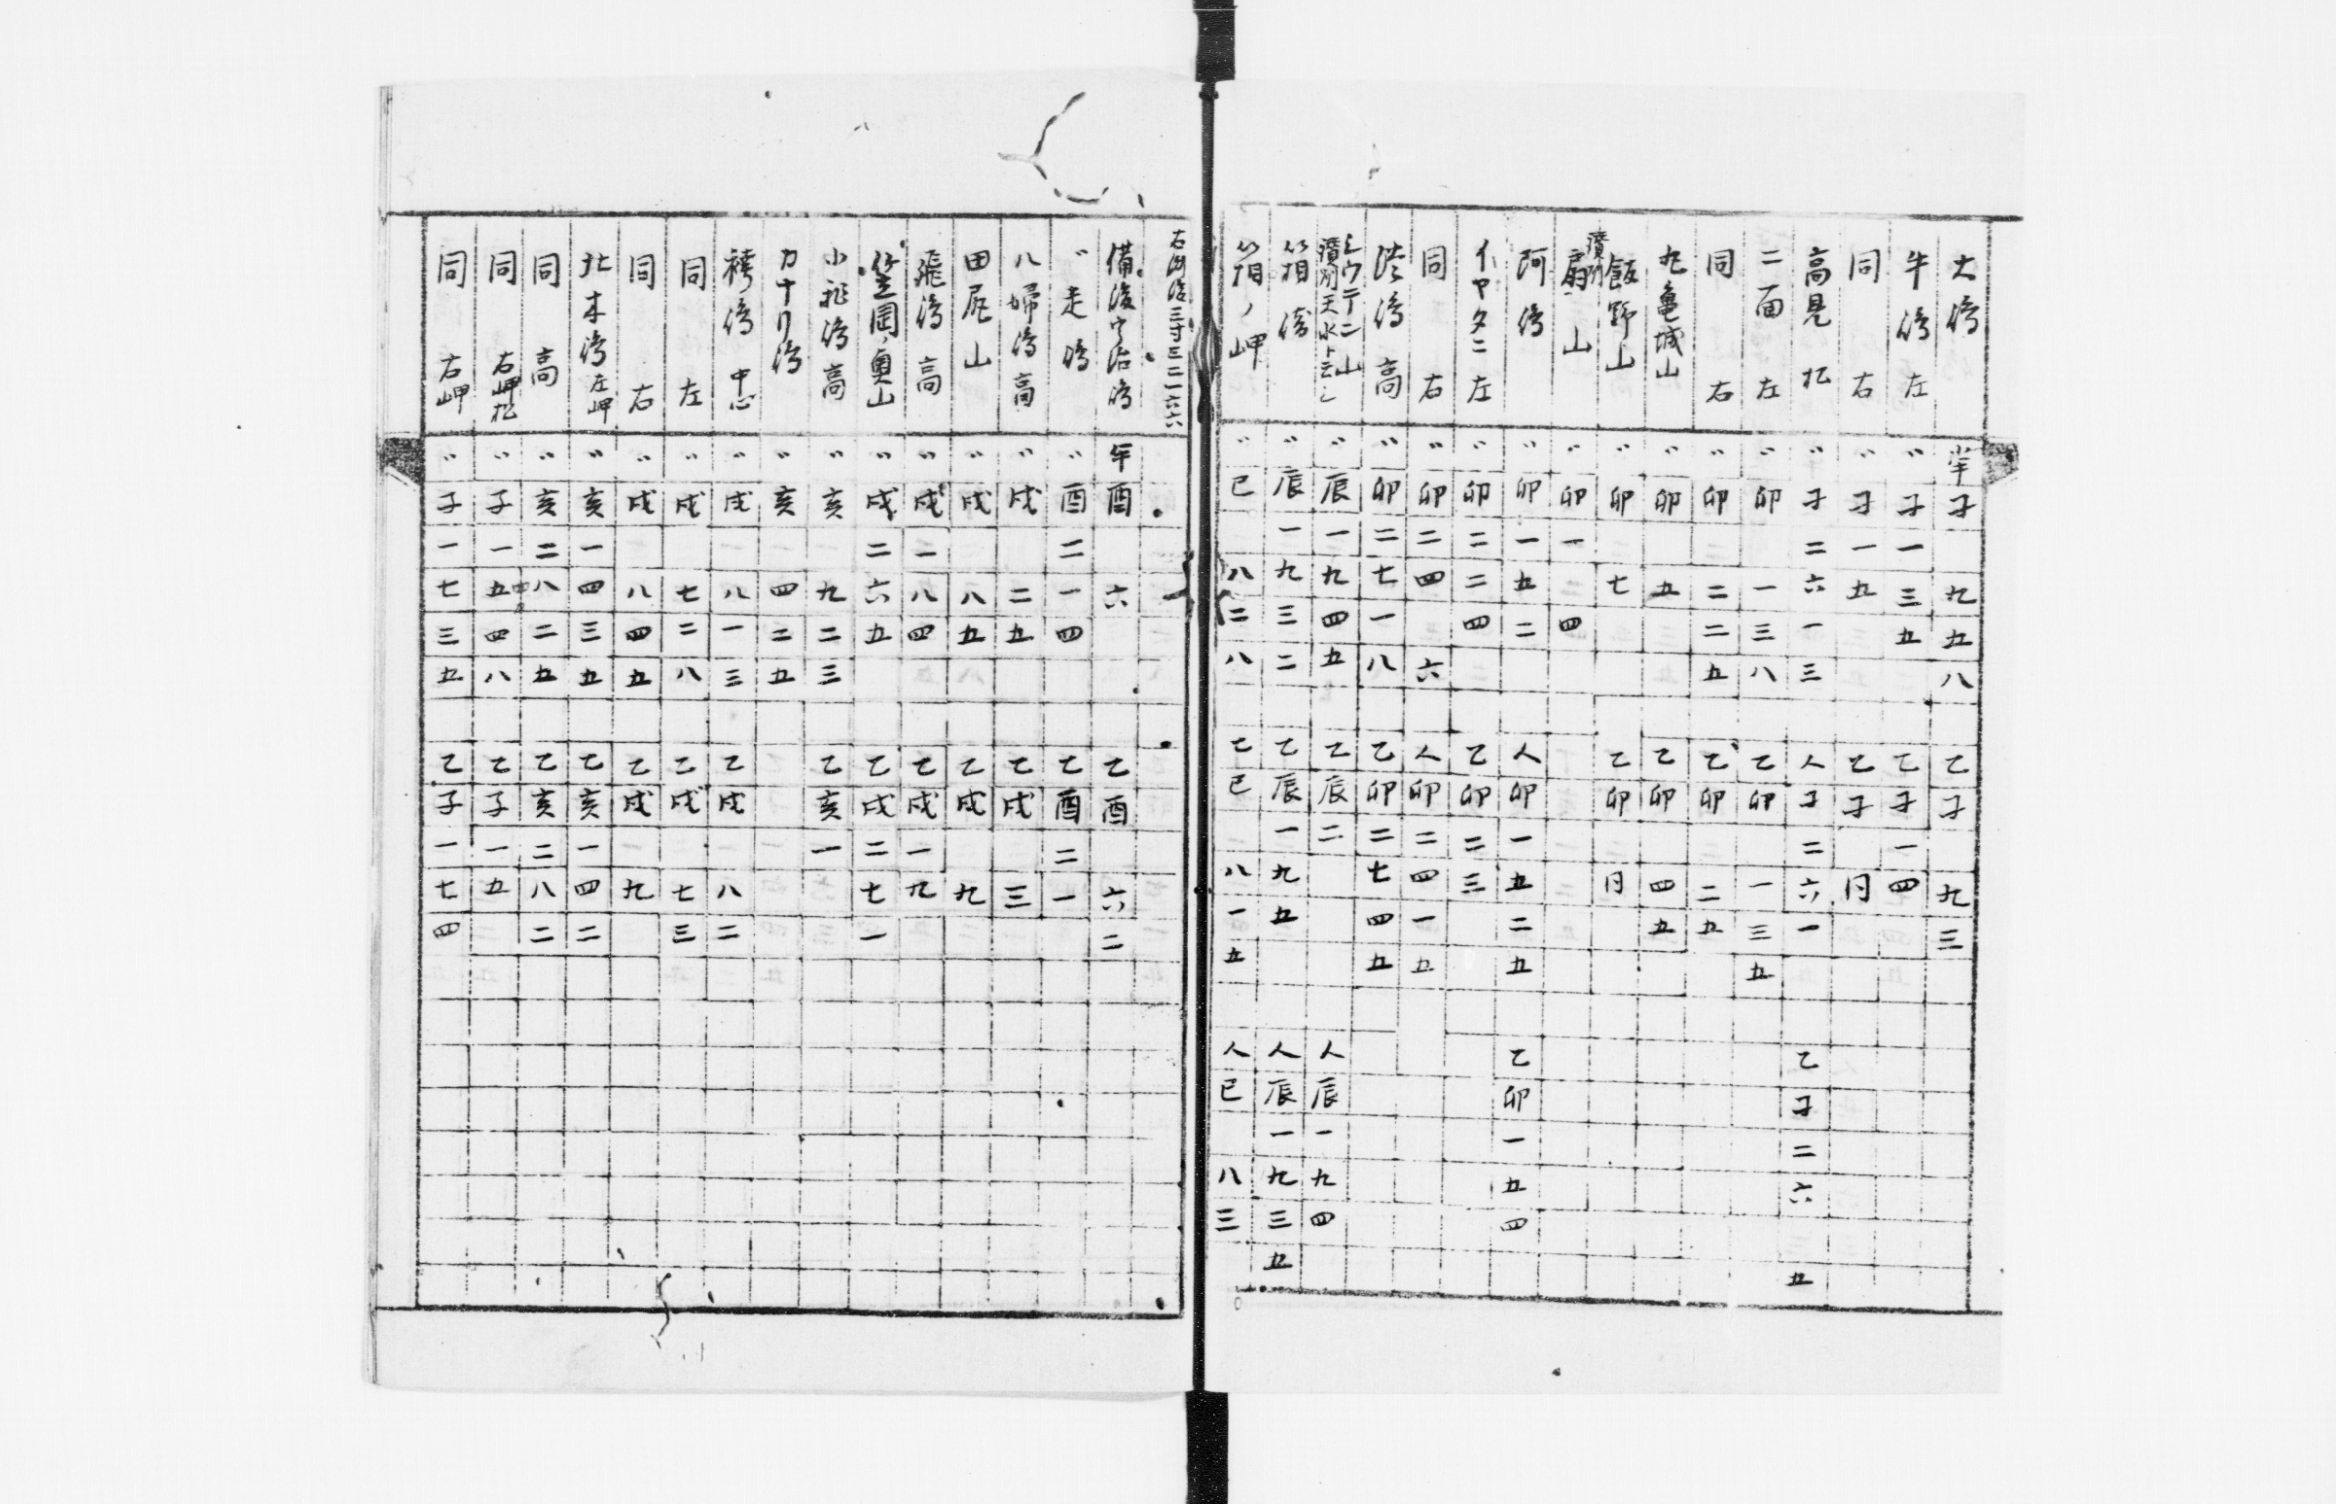 大嶋 半 子 九五八 乙子 九三
牛嶋 左 〃 子一三五 乙子一四
同 右 〃 子一五 乙子 同
高見 松 〃 子二六一三 人子二六一 乙子二六 五
二面 左 〃 卯 一三八 乙卯 一三五
同 右 〃 卯 二二五 乙卯 二五
丸亀城山 〃 卯 五 乙卯 四五
飯野山 〃 卯 七 乙卯 同
讃州 扇山 〃 卯一 四
阿嶋 〃 卯一五二 人卯一五二五 乙卯一五四
イヤタニ 左 〃 卯二二四 乙卯二三
同 右 〃 卯二四 六 人卯二四一五
高 〃 卯二七一八 乙卯二七四五
山 讃州天水ト云 〃 辰一九四五 乙辰二 人辰一九四
箱 〃 辰一九三二 乙辰一九五 人辰一九三五
箱ノ岬 〃 巳 八二八 乙巳 八一五 人巳 八三
備後宇治嶋 午 酉 六 乙酉 六二
〃走嶋 〃 酉二一四 乙酉二一
八婦嶋 高 〃 戌 二五 乙戌 三
田尻山 〃 戌 八五 乙戌 九
飛嶋 高 〃 戌一八四 乙戌一九
笠岡ノ奥山 〃 戌二六五 乙戌二七一
小飛嶋 高 〃 亥 九二三 乙亥一
カナリ嶋 〃 亥 四二五
袴嶋 中心 〃 戌 八一三 乙戌 八二
同 左 〃 戌 七二八 乙戌 七三
同 右 〃 戌 八四五 乙戌 九
北木嶋 左岬 〃 亥一四三五 乙亥一四二
同 高 〃 亥二八二五 乙亥二八二
同 右岬松 〃 子一五四八 乙子一五
同 右岬 〃 子一七三五 乙子一七四